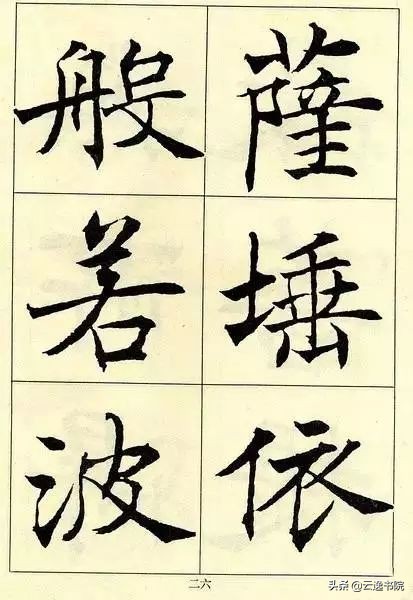 薩埵依
般若波
二六
头条 @云逸书院